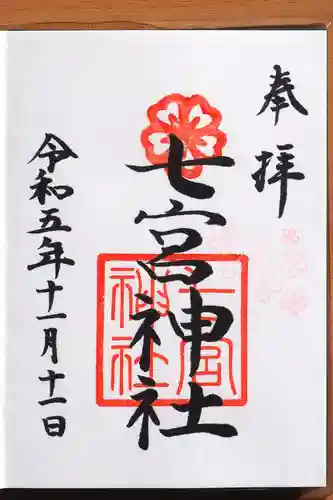 奉拝
七宮神社
七宮神社
令和五年十一月十一日